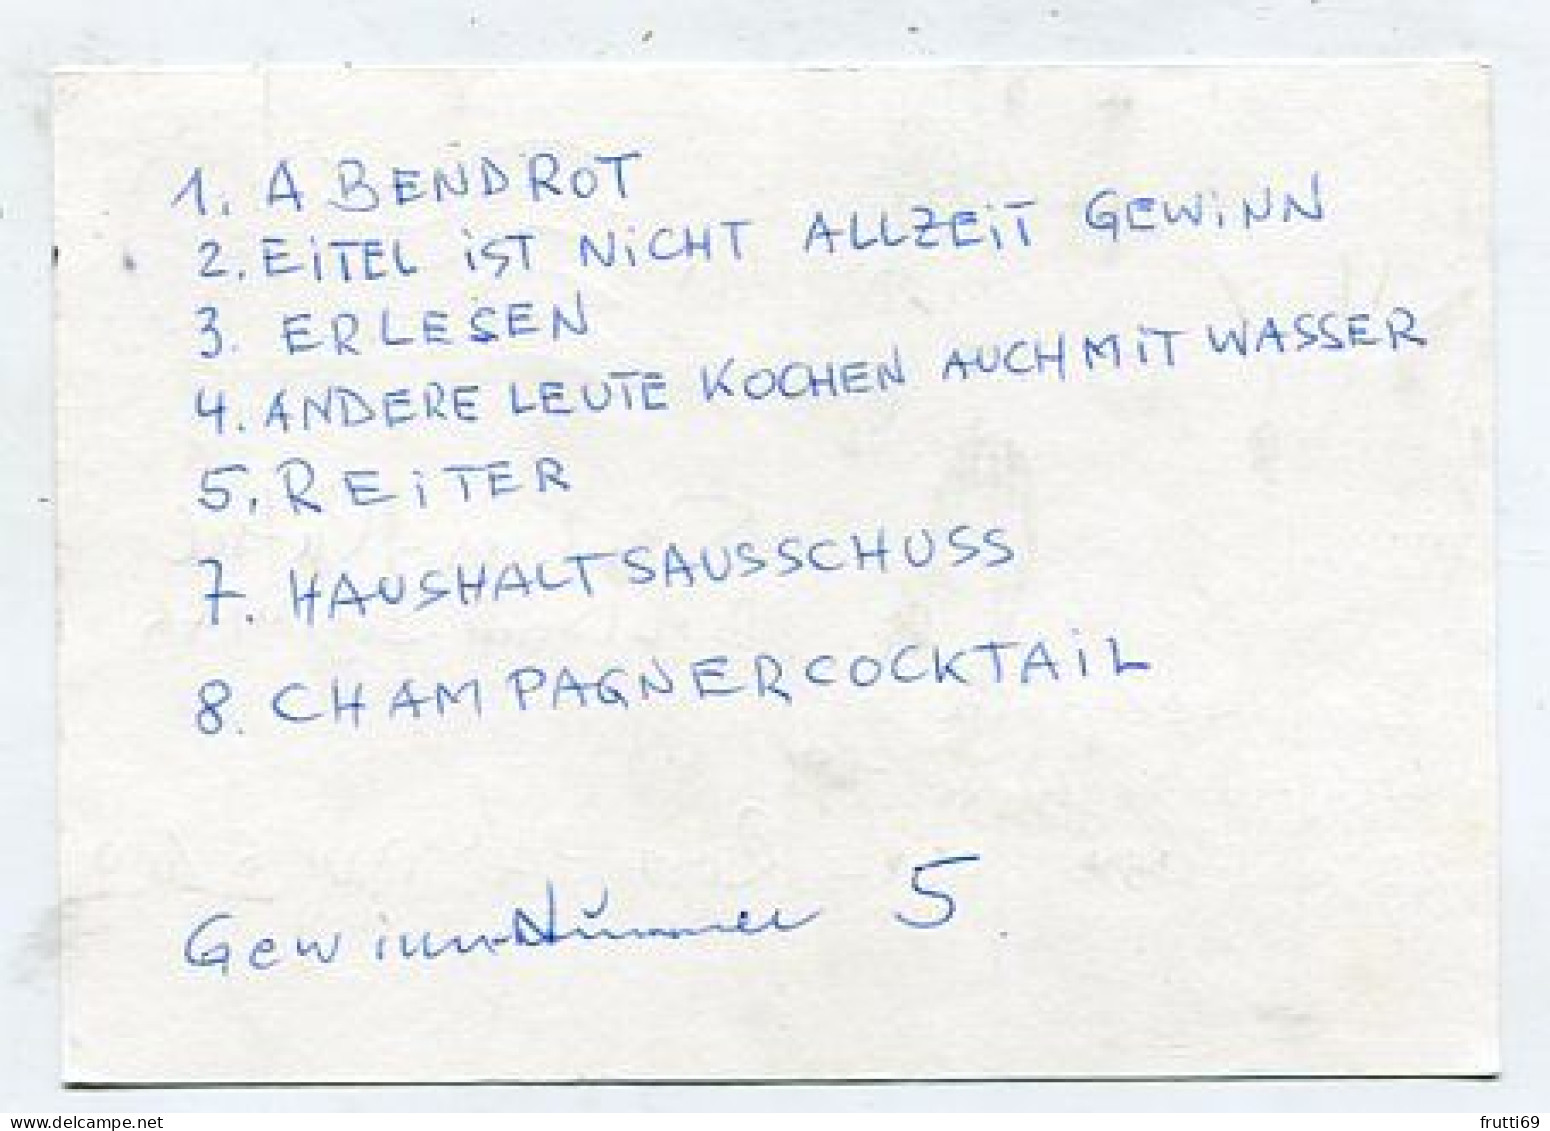 1. ABENDROT
2. EiTEL iST NiCHT ALLZEiT GEWiNN
3. ERLESEN
4. ANDERE LEUTE KOCHEN AUCH MiT WASSER
5. REiTER
7. HAUSHALTSAUSSCHUSS
8. CHAMPAGNERCOCKTAiL
Gewinn-Nummer 5
www.delcampe.net
frutti69